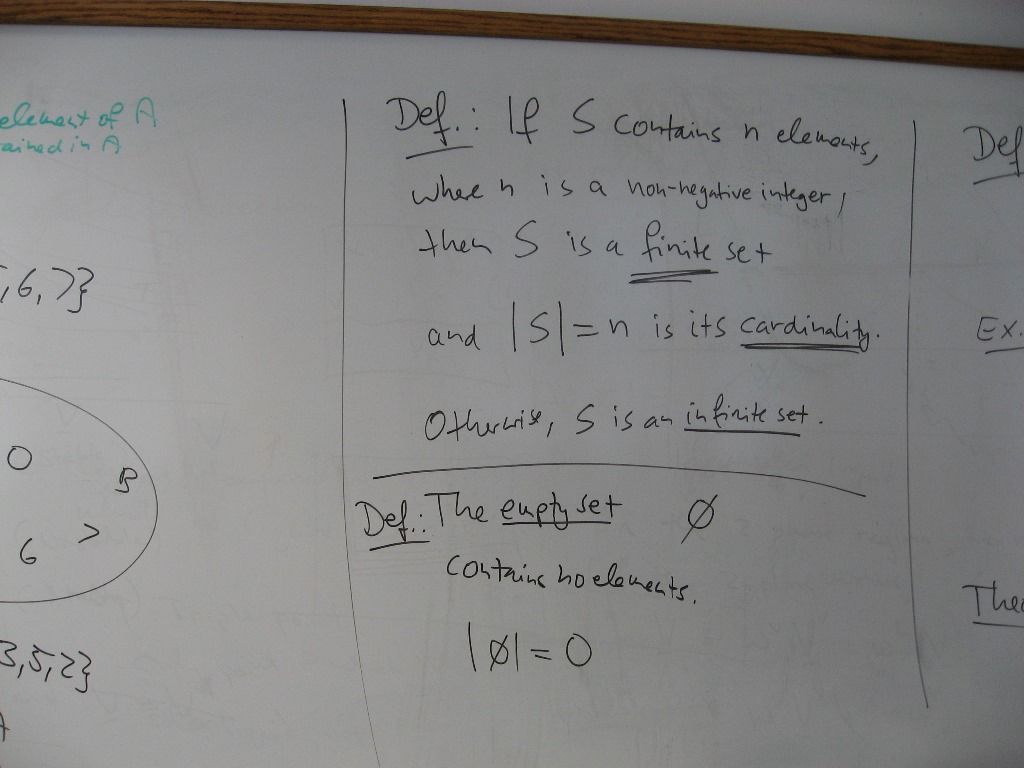 element of A
ained in A
,6,7}
0
B
6
7
3,5,2}
A
Def.: If S contains n elements,
where n is a non-negative integer,
then S is a finite set
and |S| = n is its cardinality.
Otherwise, S is an infinite set.
Def.: The empty set Ø
contains no elements.
|Ø| = 0
Def
Ex.
Theo